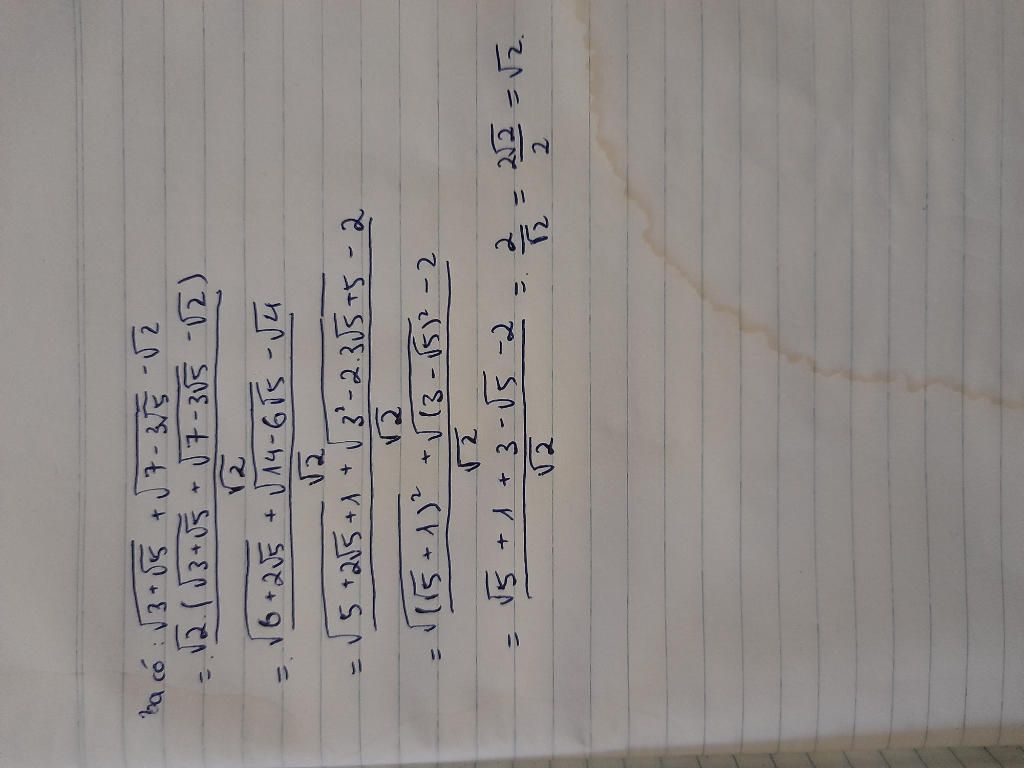 Ta có : √(3+√5) + √(7-3√5) - √2
= √2.(√(3+√5) + √(7-3√5) - √2) / √2
= √(6+2√5) + √(14-6√5) - √4 / √2
= √(5+2√5+1) + √(3²-2.3√5+5) - 2 / √2
= √((√5+1)²) + √((3-√5)²) - 2 / √2
= √5 + 1 + 3 - √5 - 2 / √2 = 2/√2 = 2√2/2 = √2.